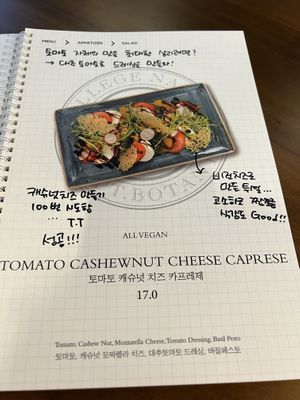 MENU > APPETIZER > SALAD
토마토 자체의 맛을 최대한 살리려면?
→ 대추토마토로 드레싱도 만들자!
비건치즈로
만든 튀일...
고소하고 짭짤함
식감도 Good!!
캐슈넛치즈 만들기
100번 시도함
... T.T
성공!!!
ALL VEGAN
TOMATO CASHEWNUT CHEESE CAPRESE
토마토 캐슈넛 치즈 카프레제
17.0
Tomato, Cashew Nut, Mozzarella Cheese, Tomato Dressing, Basil Pesto
토마토, 캐슈넛 모짜렐라 치즈, 대추토마토 드레싱, 바질페스토